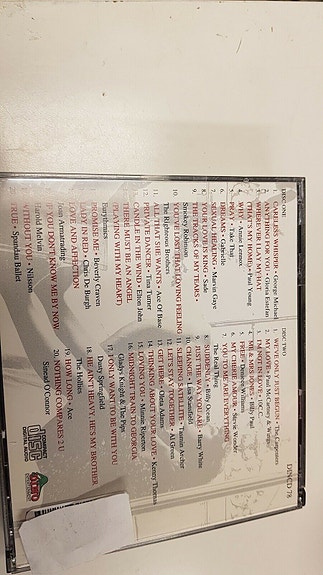 DINCD 78
DISC ONE
1. CARELESS WHISPER • George Michael
2. ANYTHING FOR YOU • Gloria Estefan
3. WHEREVER I LAY MY HAT
(THAT'S MY HOME) • Paul Young
4. WHY •
5. PRAY • Take That
6. DREAMS • Gabrielle
7. SEXUAL HEALING • Marvin Gaye
8. YOUR LOVE IS KING • Sade
9. THE TRACKS OF MY TEARS •
Smokey Robinson
10. YOU'VE LOST THAT LOVING FEELING
The Righteous Brothers
11. ALL THAT SHE WANTS • Ace Of Base
12. PRIVATE DANCER • Tina Turner
CANDLE IN THE WIND • Elton John
THERE MUST BE AN ANGEL
(PLAYING WITH MY HEART)
Eurythmics
PROMISE ME • Beverly Craven
LADY IN RED • Chris De Burgh
LOVE AND AFFECTION
Joan Armatrading
IF YOU DON'T KNOW ME BY NOW
Harold Melvin
WITHOUT YOU • Nilsson
TRUE • Spandau Ballet
DISC TWO
1. WE'VE ONLY JUST BEGUN • The Carpenters
2. MY LOVE • Paul McCartney & Wings
3. I'M NOT IN LOVE • 10C.C.
4. ME & MRS JONES • Billy Paul
5. FREE • Deniece Williams
6. MY CHERIE AMOUR • Stevie Wonder
7. YOU TO ME ARE EVERYTHING
The Real Thing
8. SUDDENLY • Billy Ocean
9. JUST THE WAY YOU ARE • Barry White
10. CHANGE • Lisa Stansfield
11. SLEEPING SATELLITE • Tasmin Archer
12. LET'S STAY TOGETHER • Al Green
13. GET HERE • Oleta Adams
14. THINKING ABOUT YOUR LOVE • Kenny Thomas
15. LOVING YOU • Minnie Riperton
16. MIDNIGHT TRAIN TO GEORGIA
Gladys Knight & The Pips
17. I JUST WANT TO BE WITH YOU
Dusty Springfield
18. HE AIN'T HEAVY, HE'S MY BROTHER
The Hollies
19. HOW LONG • Ace
20. NOTHING COMPARES 2 U
Sinead O'Connor
COMPACT
disc
DIGITAL AUDIO
DINO